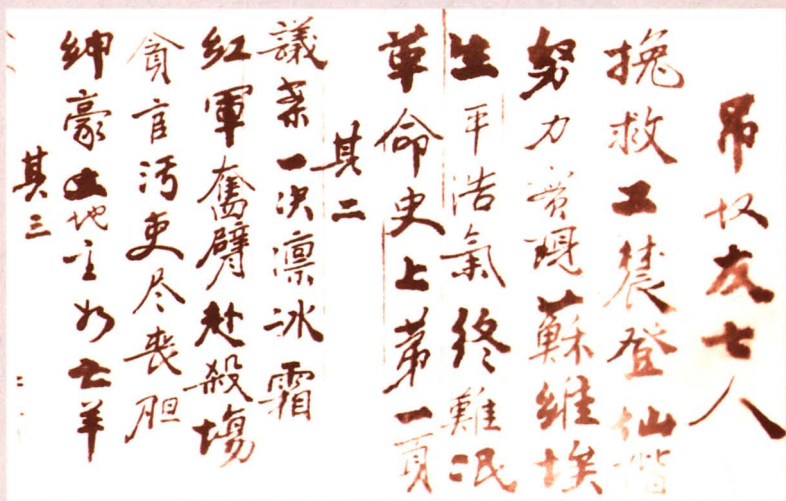 吊友七人
挽救工農登仙階
努力實現蘇維埃
生平浩氣終難泯
革命史上第一頁
其二
議案一决凛冰霜
紅軍奮臂赴殺場
貪官汚吏尽喪胆
紳豪地主如亡羊
其三